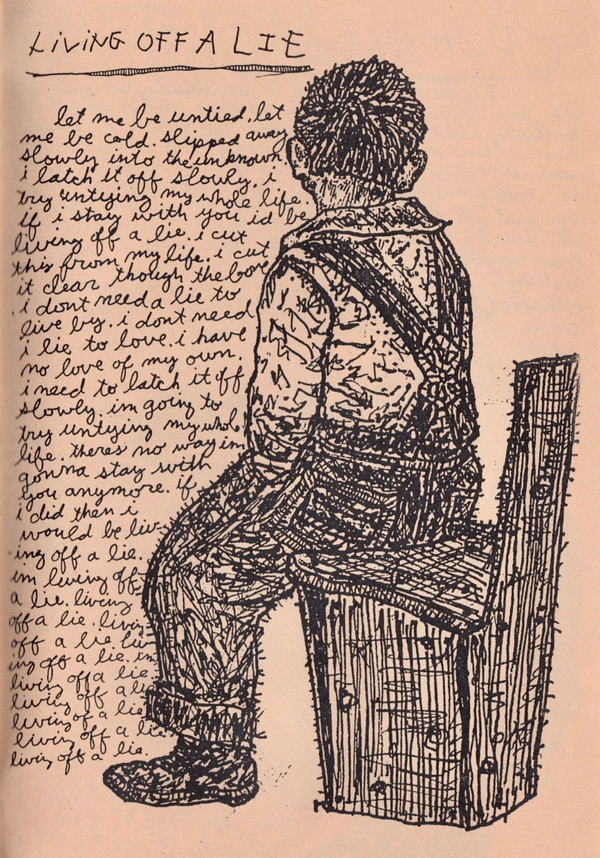 LiViNG OFF A LIE
let me be untied. let
me be cold. slipped away
slowly into the unknown.
i latch it off slowly. i
try untying my whole life.
if i stay with you id be
living off a lie. i cut
this from my life. i cut
it clear though the bone
. i dont need a lie to
live by. i dont need
a lie to love. i have
no love of my own.
i need to latch it off
slowly. im going to
try untying my whole
life. theres no way im
gonna stay with
you anymore. if
i did then i
would be liv-
ing off a lie.
im living off
a lie. living
off a lie. living
off a lie. liv-
ing off a lie. im
living off a lie.
living off a lie
living of a lie
living off a lie.
living off a lie.